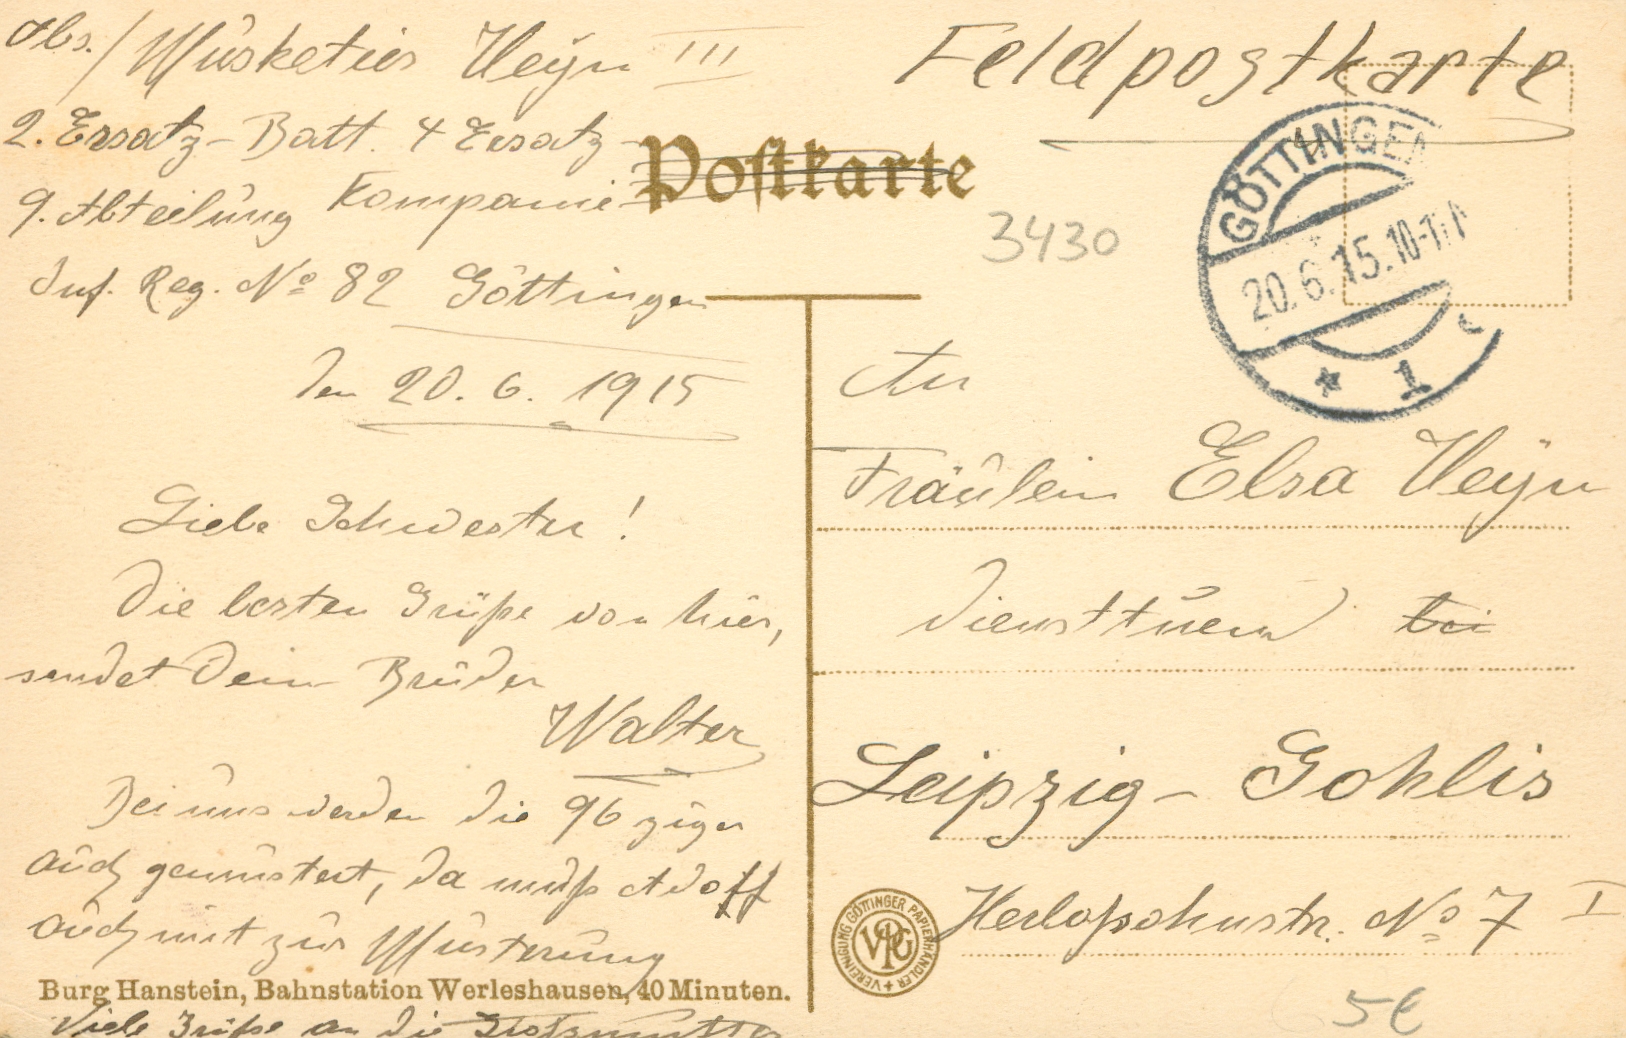 Abs./ Musketier Heyn III
2. Ersatz-Batt. 4 Ersatz-
9. Abteilung Kompanie
Inf. Reg. No 82 Göttingen
Den 20. 6. 1915
Liebe Schwester!
Die besten Grüße von hier,
sendet Dein Bruder
Walter
Bei uns werden die 96 ziger
auch gemustert, da muß Adolf
auch mit zur Musterung
Burg Hanstein, Bahnstation Werleshausen, 40 Minuten.
Viele Grüße an die Großmutter
Feldpostkarte
Postkarte
3430
GÖTTINGEN
20.6.15.10-11
* 1 c
An
Fräulein Elsa Heyn
bei
Leipzig-Gohlis
Herloßsohnstr. No 7 I
VEREINIGUNG GÖTTINGER PAPIERHÄNDLER
VPG
5€